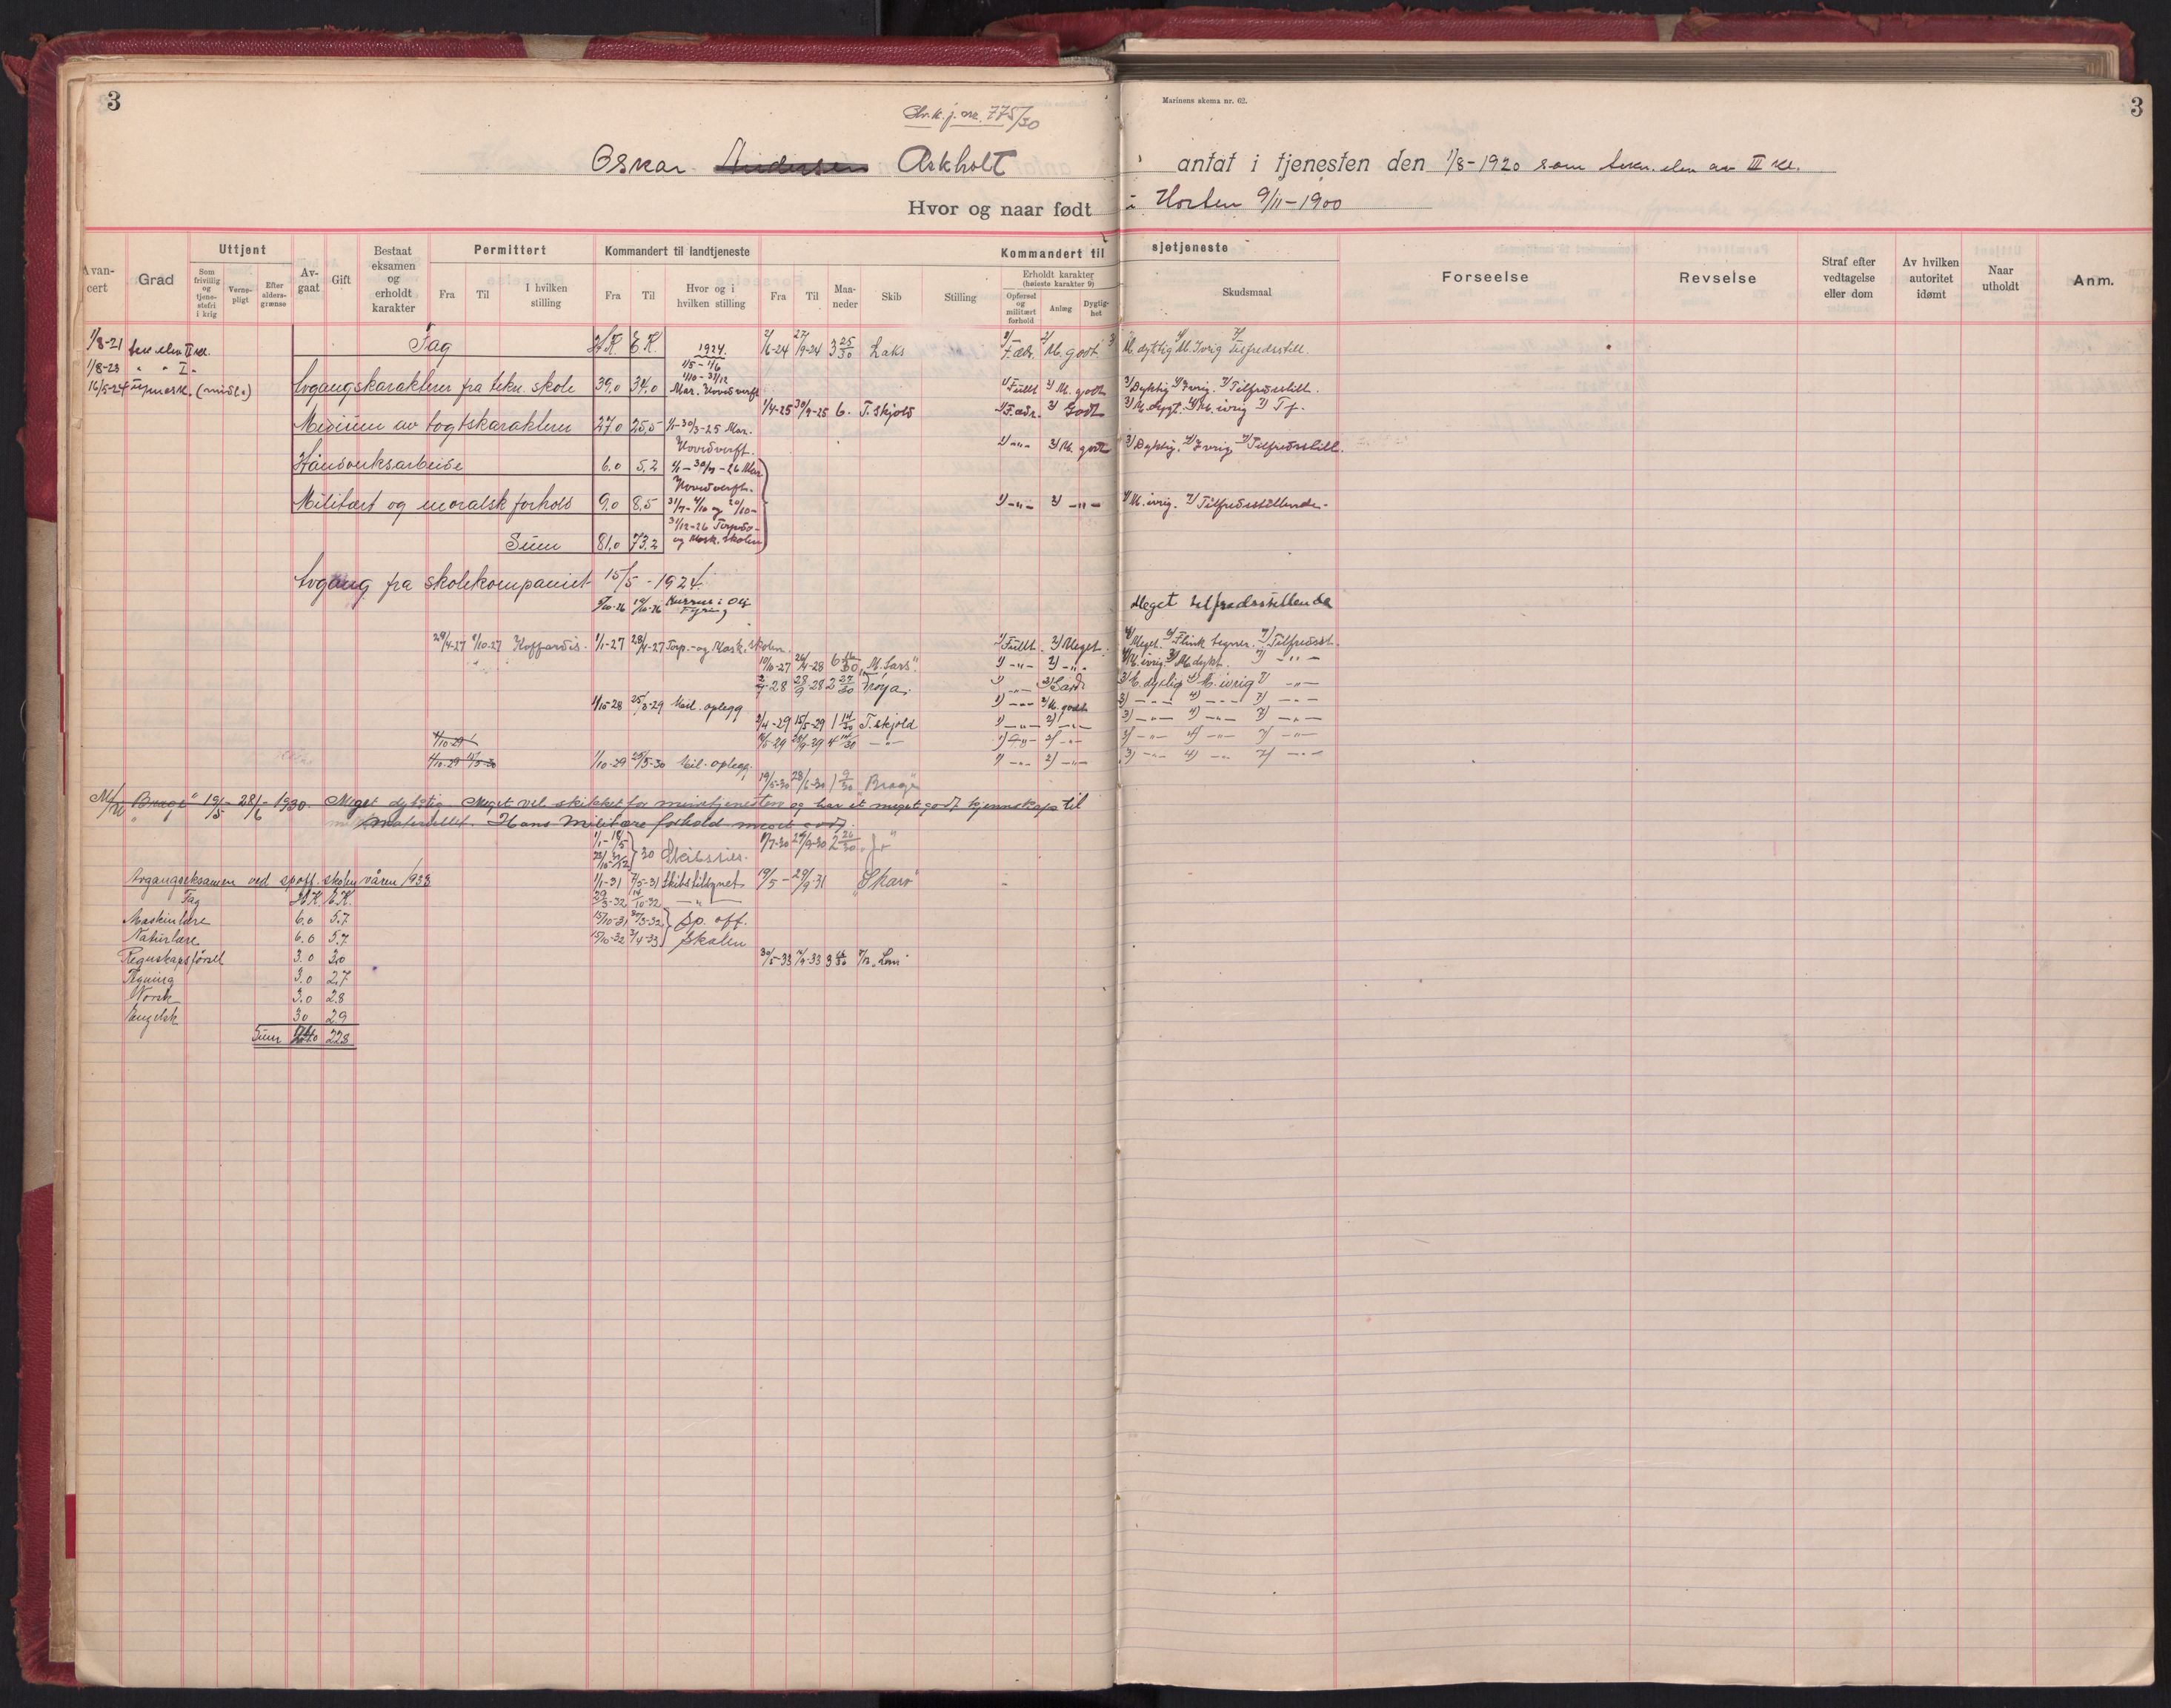 3
Marinens skema nr. 62.
3
j. nr. 775/30
Oskar Andersen Askholt antat i tjenesten den 1/8-1920 som av III kl.
Hvor og naar født i Horten 9/11-1900
Avancert
Grad
Uttjent
Som frivillig og tjenestefri i krig
Vernepligt
Efter aldersgrænse
Avgaat
Gift
Bestaat eksamen og erholdt karakter
Permittert
Fra
Til
I hvilken stilling
Kommandert til landtjeneste
Fra
Til
Hvor og i hvilken stilling
Kommandert til sjøtjeneste
Fra
Til
Maaneder
Skib
Stilling
Erholdt karakter (høieste karakter 9)
Opførsel og militært forhold
Anlæg
Dygtighet
Skudsmaal
Forseelse
Revselse
Straf efter vedtagelse eller dom
Av hvilken autoritet idømt
Naar utholdt
Anm.
1/8-21 elev II kl.
1/8-23 " " I "
16/5-24 (midl.)
Fag H.K. E.K.
Avgangskarakterer fra tekn. skole 39,0 34,0
Medium av togtskarakterer 27,0 25,5
Håndverksarbeide 6,0 5,2
Militært og moralsk forhold 9,0 8,5
Sum 81,0 73,2
Avgang fra skolekompaniet 15/5-1924
1924.
1/5-1/6
1/10-31/12
Mar. Hovedverft
1/1-30/3-25 Mar. Hovedverft.
Hovedverft.
31/12-26 Torpedo- og Mask. skolen
2/6-24 27/9-24 3 25/30 Laks
1/4-25 30/9-25 6. T. skjold
M. godt
M. dyktig M. Ivrig Tilfredsstill.
1) Fullt 2) M. godt 3) Dyktig 4) Ivrig. 7) Tilfredsstill.
2) Godt 4) M. ivrig 7) Tf.
1) -"- 2) M. godt 3) Dyktig, 4) Ivrig 7) Tilfredsstill.
1) -"- 2) -"- 4) M. ivrig. 7) Tilfredsstillende.
Kursus i Olj Fyring
Meget tilfredsstillende
29/4-27 9/10-27 Koffardis. 1/1-27 28/4-27 Torp.- og Mask. skolen
1) Fullt. 2) Meget. Flink tegner. 7) Tilfredsst.
10/10-27 26/4-28 6 16/30 "M. Sars"
1) -"- 2) -"- 4) M. ivrig 3) M. dykt. 7) -"-
28/9-28 2 27/30 Frøya.
3) M. dyktig 4) M. ivrig 7) -"-
1/10-28 25/3-29 Mil. oplegg
1) -"- 2) M. godt 3) -"- 4) -"- 7) -"-
2/4-29 15/5-29 1 14/30 T. skjold
1) -"- 2) -"- 3) -"- 4) -"- 7) -"-
16/5-29 29/9-29 4 14/30 -"-
3) -"- 4) -"- 7) -"-
1/10-29
1/10-29 15/5-30
1/10-29 25/5-30 Mil. oplegg.
1) -"- 2) -"- 3) -"- 4) -"- 7) -"-
19/5-30 28/6-30 1 9/30 "Brage"
"Brage" 19/5 - 28/6 - 1930. Meget dyktig. Meget vel skikket for minetjenesten og har et meget godt kjennskap til
Materiellet. Hans Militære forhold meget godt.
30 Skibstils.
1/7-30 29/9-30 2 26/30
Avgangseksamen ved spoff. skolen våren 1933
1/1-31 7/5-31 Skibstilsynet 19/5 - 29/9-31 "Skarv"
29/3-32 14/10-32 -"-
Fag H.K. E.K.
Maskinlære 6.0 5.7
15/10-31 30/3-32
15/10-32 3/4-33
Sp. off. skolen
Naturlære 6.0 5.7
Regnskapsførsel 3.0 3.0
30/5-33 7/9-33
Tegning 3.0 2.7
Norsk 3.0 2.8
Engelsk 3.0 2.9
Sum 24.0 22.8